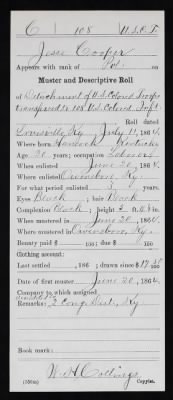 C 108 U.S.C.T.
Jesse Cooper
Appears with rank of Pvt. on
Muster and Descriptive Roll
of Detachment of U.S. Colored Troops
transferred to 108 U.S. Colored Inft.
Roll dated
Louisville, Ky July 11, 1864.
Where born Hancock Kentucky
Age 20 years; occupation Laborer
When enlisted June 20, 1864.
Where enlisted Owensboro, Ky.
For what period enlisted 3 years.
Eyes Black; hair Black
Complexion Black; height 5 ft. in.
When mustered in June 20, 1864.
Where mustered in Owensboro, Ky.
Bounty paid $ 100; due $ 100
Clothing account:
Last settled , 186 ; drawn since $ 17
Date of first muster June 20, 1864.
Company to which assigned
Remarks: 2 Cong. Dist., Ky
Book mark:
W. H. Collings
(356a) Copyist.